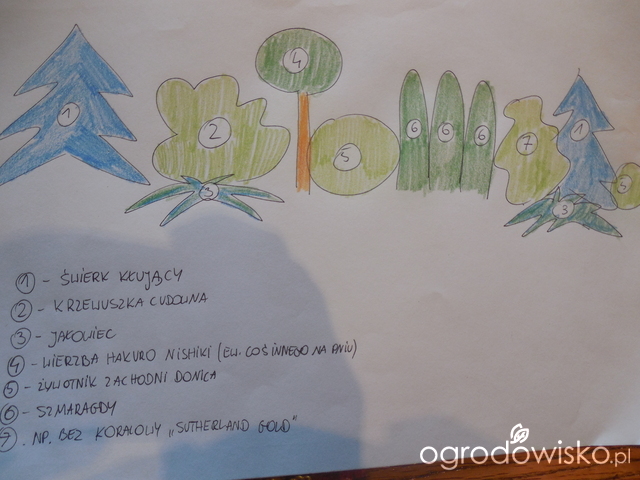 1
2
3
4
5
6 6 6
7
1
3
5
1 - ŚWIERK KŁUJĄCY
2 - KRZEWUSZKA CUDOWNA
3 - JAŁOWIEC
4 - WIERZBA HAKURO NISHIKI (EW. COŚ INNEGO NA PNIU)
5 - ŻYWOTNIK ZACHODNI DANICA
6 - SZMARAGDY
7. NP. BEZ KORALOWY „SUTHERLAND GOLD"
ogrodowisko.pl